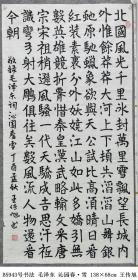 北國風光千里冰封萬里雪飄望長城内
外惟餘莽莽大河上下頓失滔滔山舞銀
蛇原馳蠟象欲與天公試比高須晴日看
紅裝素裹分外妖嬈江山如此多嬌引無
數英雄競折腰惜秦皇漢武略輸文采唐
宗宋祖稍遜風騷一代天驕成吉思汗只
識彎弓射大雕俱往矣數風流人物還看
今朝
敬録毛澤東詞沁園春雪丁酉孟秋
B5943号书法 毛泽东 沁园春·雪 138×68cm 王传旭